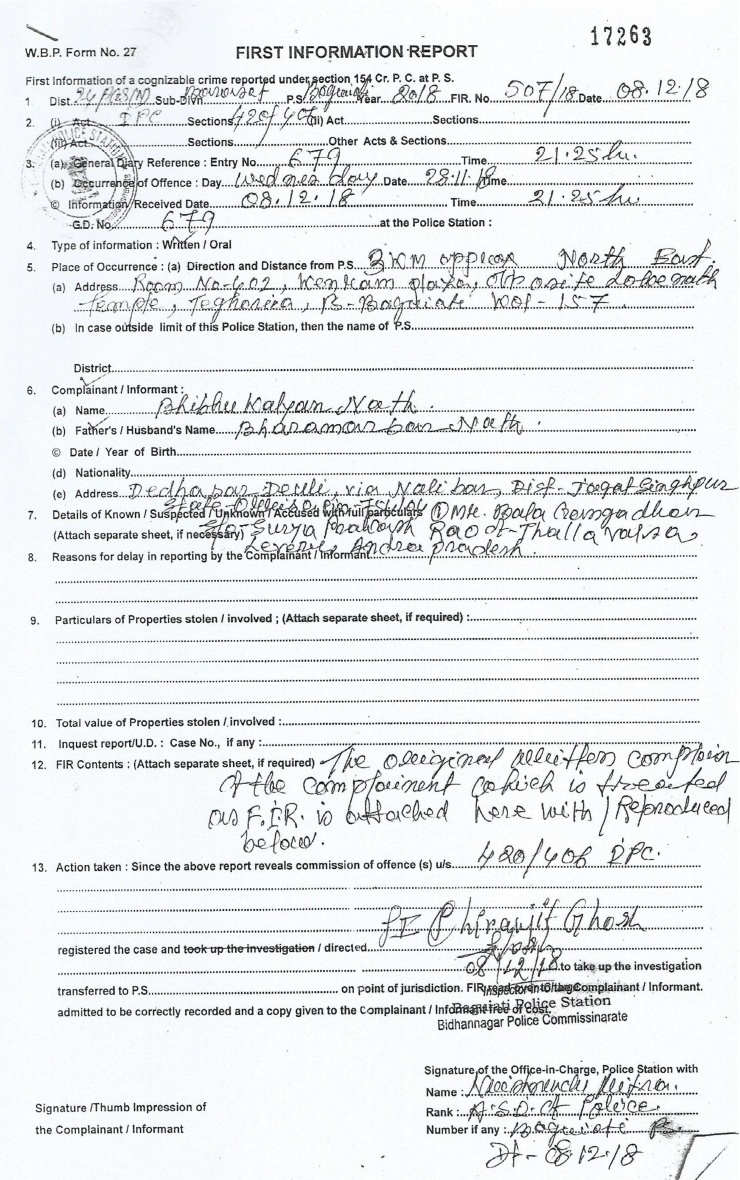 17263
W.B.P. Form No. 27
FIRST INFORMATION REPORT
First Information of a cognizable crime reported under section 154 Cr. P. C. at P. S.
1 Dist. Sub-Divn. Barasat P.S. Year 2018 FIR. No 507/18 Date 08.12.18
2. (i) Act IPC Sections 420/406 (ii) Act Sections
(iii) Act Sections Other Acts & Sections
3. (a) General Diary Reference : Entry No. 679 Time 21.25 hr.
(b) Occurrence of Offence : Day Wednesday Date 28.11.18 Time
© Information Received Date 08.12.18 Time 21.25 hr
G.D. No. 679 at the Police Station :
4. Type of information : Written / Oral
5. Place of Occurrence : (a) Direction and Distance from P.S. 3 KM approx North East.
(a) Address Room No-402, plaza, Opposite
temple, Teghoria, Kol-157
(b) In case outside limit of this Police Station, then the name of P.S.
District
6. Complainant / Informant :
(a) Name Bhibhu Kalyan Nath.
(b) Father's / Husband's Name Nath.
© Date / Year of Birth
(d) Nationality
(e) Address via Nalibar, Dist- Jagat Singhpur
State
7. Details of Known / Suspected / Unknown / Accused with full particulars ① Mr. Bala Gangadhar
(Attach separate sheet, if necessary) S/o- Surya Prakash Rao of- Thalla Valsa,
8. Reasons for delay in reporting by the Complainant / Informant Andra pradesh.
9. Particulars of Properties stolen / involved ; (Attach separate sheet, if required) :
10. Total value of Properties stolen / involved :
11. Inquest report/U.D. : Case No., if any :
12. FIR Contents : (Attach separate sheet, if required) The original written complain
of the complainent which is treated
as F.I.R. is attached here with / Reproduced
below.
13. Action taken : Since the above report reveals commission of offence (s) u/s. 420/406 IPC.
SI Chiranjit Ghosh
registered the case and took up the investigation / directed
08/12/18 to take up the investigation
transferred to P.S. on point of jurisdiction. FIR read over to the Complainant / Informant.
Inspector in Charge
admitted to be correctly recorded and a copy given to the Complainant / Informant free of cost.
Baguiati Police Station
Bidhannagar Police Commissinarate
Signature of the Office-in-Charge, Police Station with
Name :
Signature /Thumb Impression of
Rank : A.S.I. of Police.
the Complainant / Informant
Number if any :
Dt- 08.12.18